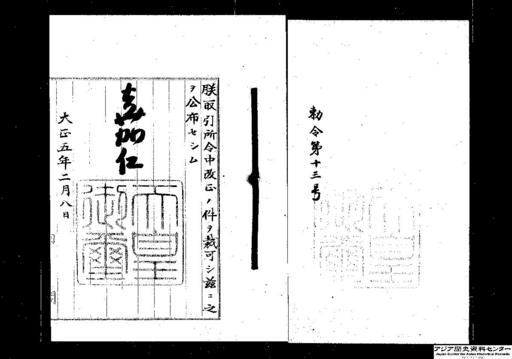 勅令第十三号
朕取引所令中改正ノ件ヲ裁可シ玆ニ之
ヲ公布セシム
嘉仁
天皇御璽
大正五年二月八日
アジア歴史資料センター
Japan Center for Asian Historical Records